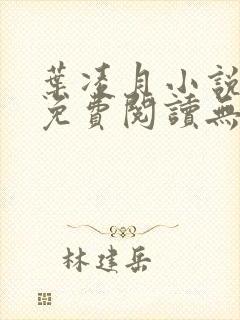 葉凌月小說
免費閱讀無
林建岳